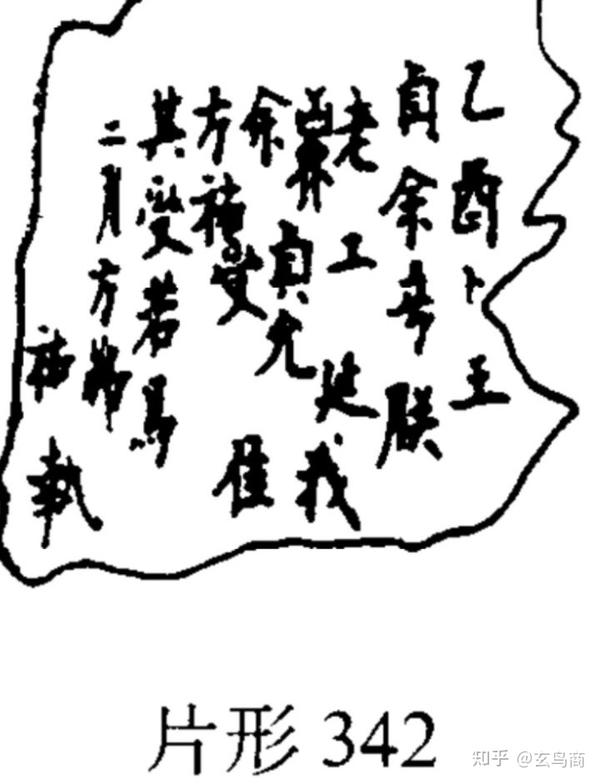 乙酉卜王
貞余朕
老工延我
貞允隹
余受
方祐
其受若馬
二月方弗
祐執
片形 342
知乎 @玄鸟商